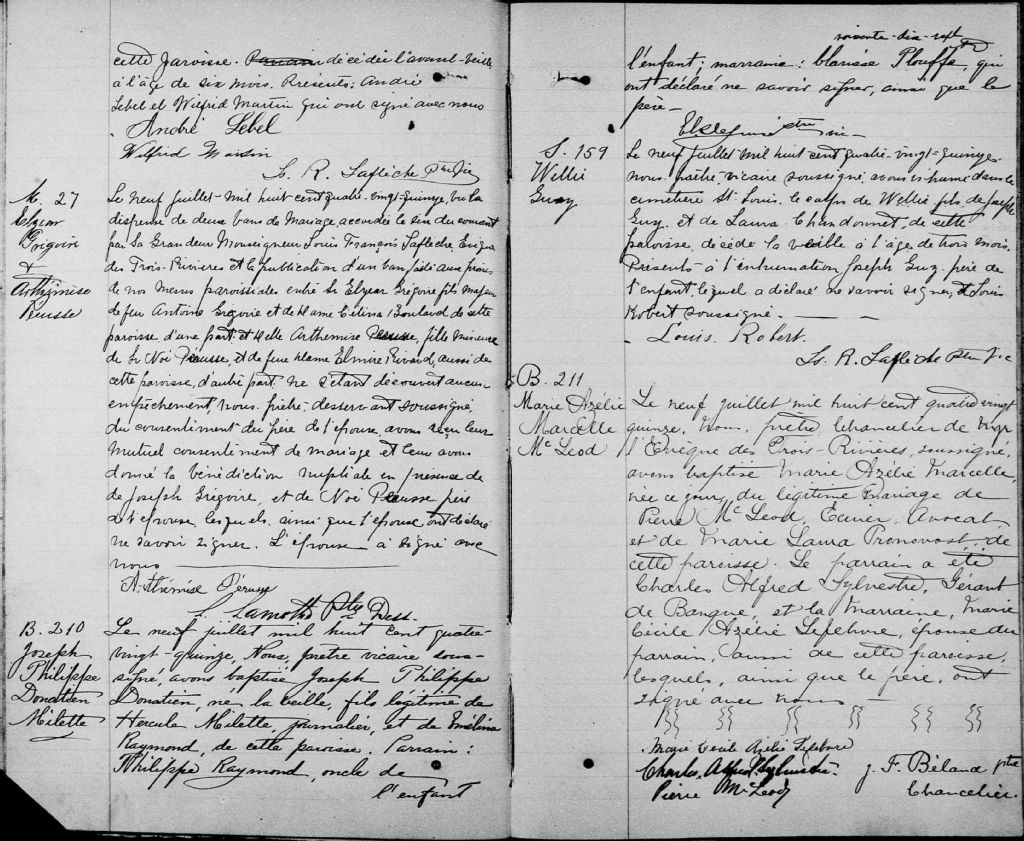 cette paroisse. Parrain décédé l'avant-veille
à l'âge de six mois. Présents: André
Lebel et Wilfrid Martin qui ont signé avec nous
André Lebel
Wilfrid Martin
Ls. R. Laflèche Ptre Vic
M. 27
Elzéar
Grégoire
&
Arthémise
Péusse
Le neuf juillet mil huit cent quatre-vingt-quinze, vu la
dispense de deux bans de Mariage accordée le six du courant
par Sa Grandeur Monseigneur Louis François Laflèche Evêque
des Trois-Rivières et la publication d'un ban faite aux prônes
de nos Messes paroissiales entre Sr Elzear Grégoire fils majeur
de feu Antoine Grégoire et de Dame Célina Boulard de cette
paroisse, d'une part; et Delle Arthemise Péusse, fille mineure
de Sr Noé Péusse, et de feue Dame Elmire Rivard, aussi de
cette paroisse, d'autre part, ne s'étant découvert aucun
empêchement, nous prêtre, desservant soussigné,
du consentement du père de l'épouse, avons reçu leur
mutuel consentement de mariage et leur avons
donné la bénédiction nuptiale en présence de
de Joseph Grégoire, et de Noé Péusse père
de l'épouse lesquels ainsi que l'époux ont déclaré
ne savoir signer. L'épouse a signé avec
nous
Arthémise Péruss
L. Lamothe Ptre Dess.
B. 210
Joseph
Philippe
Donatien
Milette
Le neuf juillet mil huit cent quatre-
vingt-quinze, Nous, prêtre vicaire sous-
signé, avons baptisé Joseph Philippe
Donatien, né la veille, fils légitime de
Hercule Milette, journalier, et de Emélina
Raymond, de cette paroisse. Parrain:
Philippe Raymond, oncle de
l'enfant
soixante-dix-sept
l'enfant; marraine: Clarisse Plouffe, qui
ont déclaré ne savoir signer, ainsi que le
père –
ptre vic –
S. 159
Willie
Guay
Le neuf juillet mil huit cent quatre-vingt-quinze
nous prêtre-vicaire soussigné avons inhumé dans le
cimetière St-Louis, le corps de Willie fils de Joseph
Guay, et de Laura Chandonnet, de cette
paroisse, décédé la veille à l'âge de trois mois.
Présents à l'inhumation Joseph Guay père de
l'enfant, lequel a déclaré ne savoir signer, et Louis
Robert soussigné
Louis Robert.
Ls. R. Laflèche Ptre Vic
B. 211
Marie Azélie
Marcelle
Mc Leod
Le neuf juillet mil huit cent quatre vingt
quinze, Nous, prêtre chancelier de Mgr
l'Evêque des Trois-Rivières, soussigné,
avons baptisé Marie Azélie Marcelle,
née ce jour, du légitime mariage de
Pierre Mc Leod, Ecuier, Avocat,
et de Marie Laura Pronovost, de
cette paroisse. Le parrain a été
Charles Alfred Sylvestre, Gérant
de Banque, et la marraine, Marie
Cécile Azélie Lefebvre, épouse du
parrain, aussi de cette paroisse,
lesquels, ainsi que le père, ont
signé avec nous
Marie Cécile Azélie Lefebvre
Charles Alfred Sylvestre.
J. F. Béland ptre
Pierre McLeod
Chancelier.